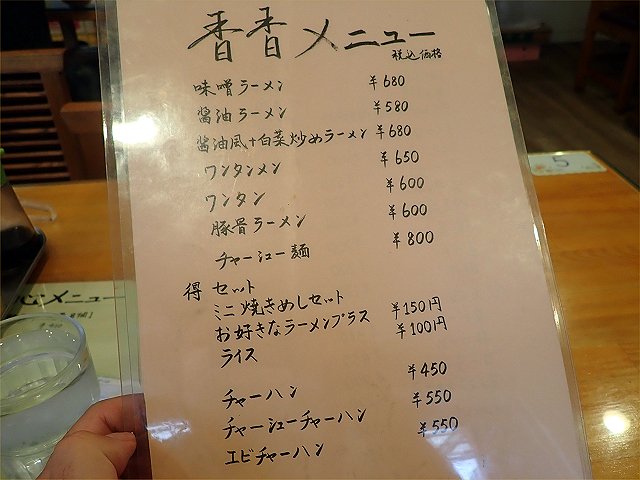 香香メニュー
税込価格
味噌ラーメン ¥680
醤油ラーメン ¥580
醤油風+白菜炒めラーメン ¥680
ワンタンメン ¥650
ワンタン ¥600
豚骨ラーメン ¥600
チャーシュー麺 ¥800
得 セット
ミニ焼きめしセット ¥150円
お好きなラーメンプラス ¥100円
ライス
チャーハン ¥450
チャーシューチャーハン ¥550
エビチャーハン ¥550
メニュー
5